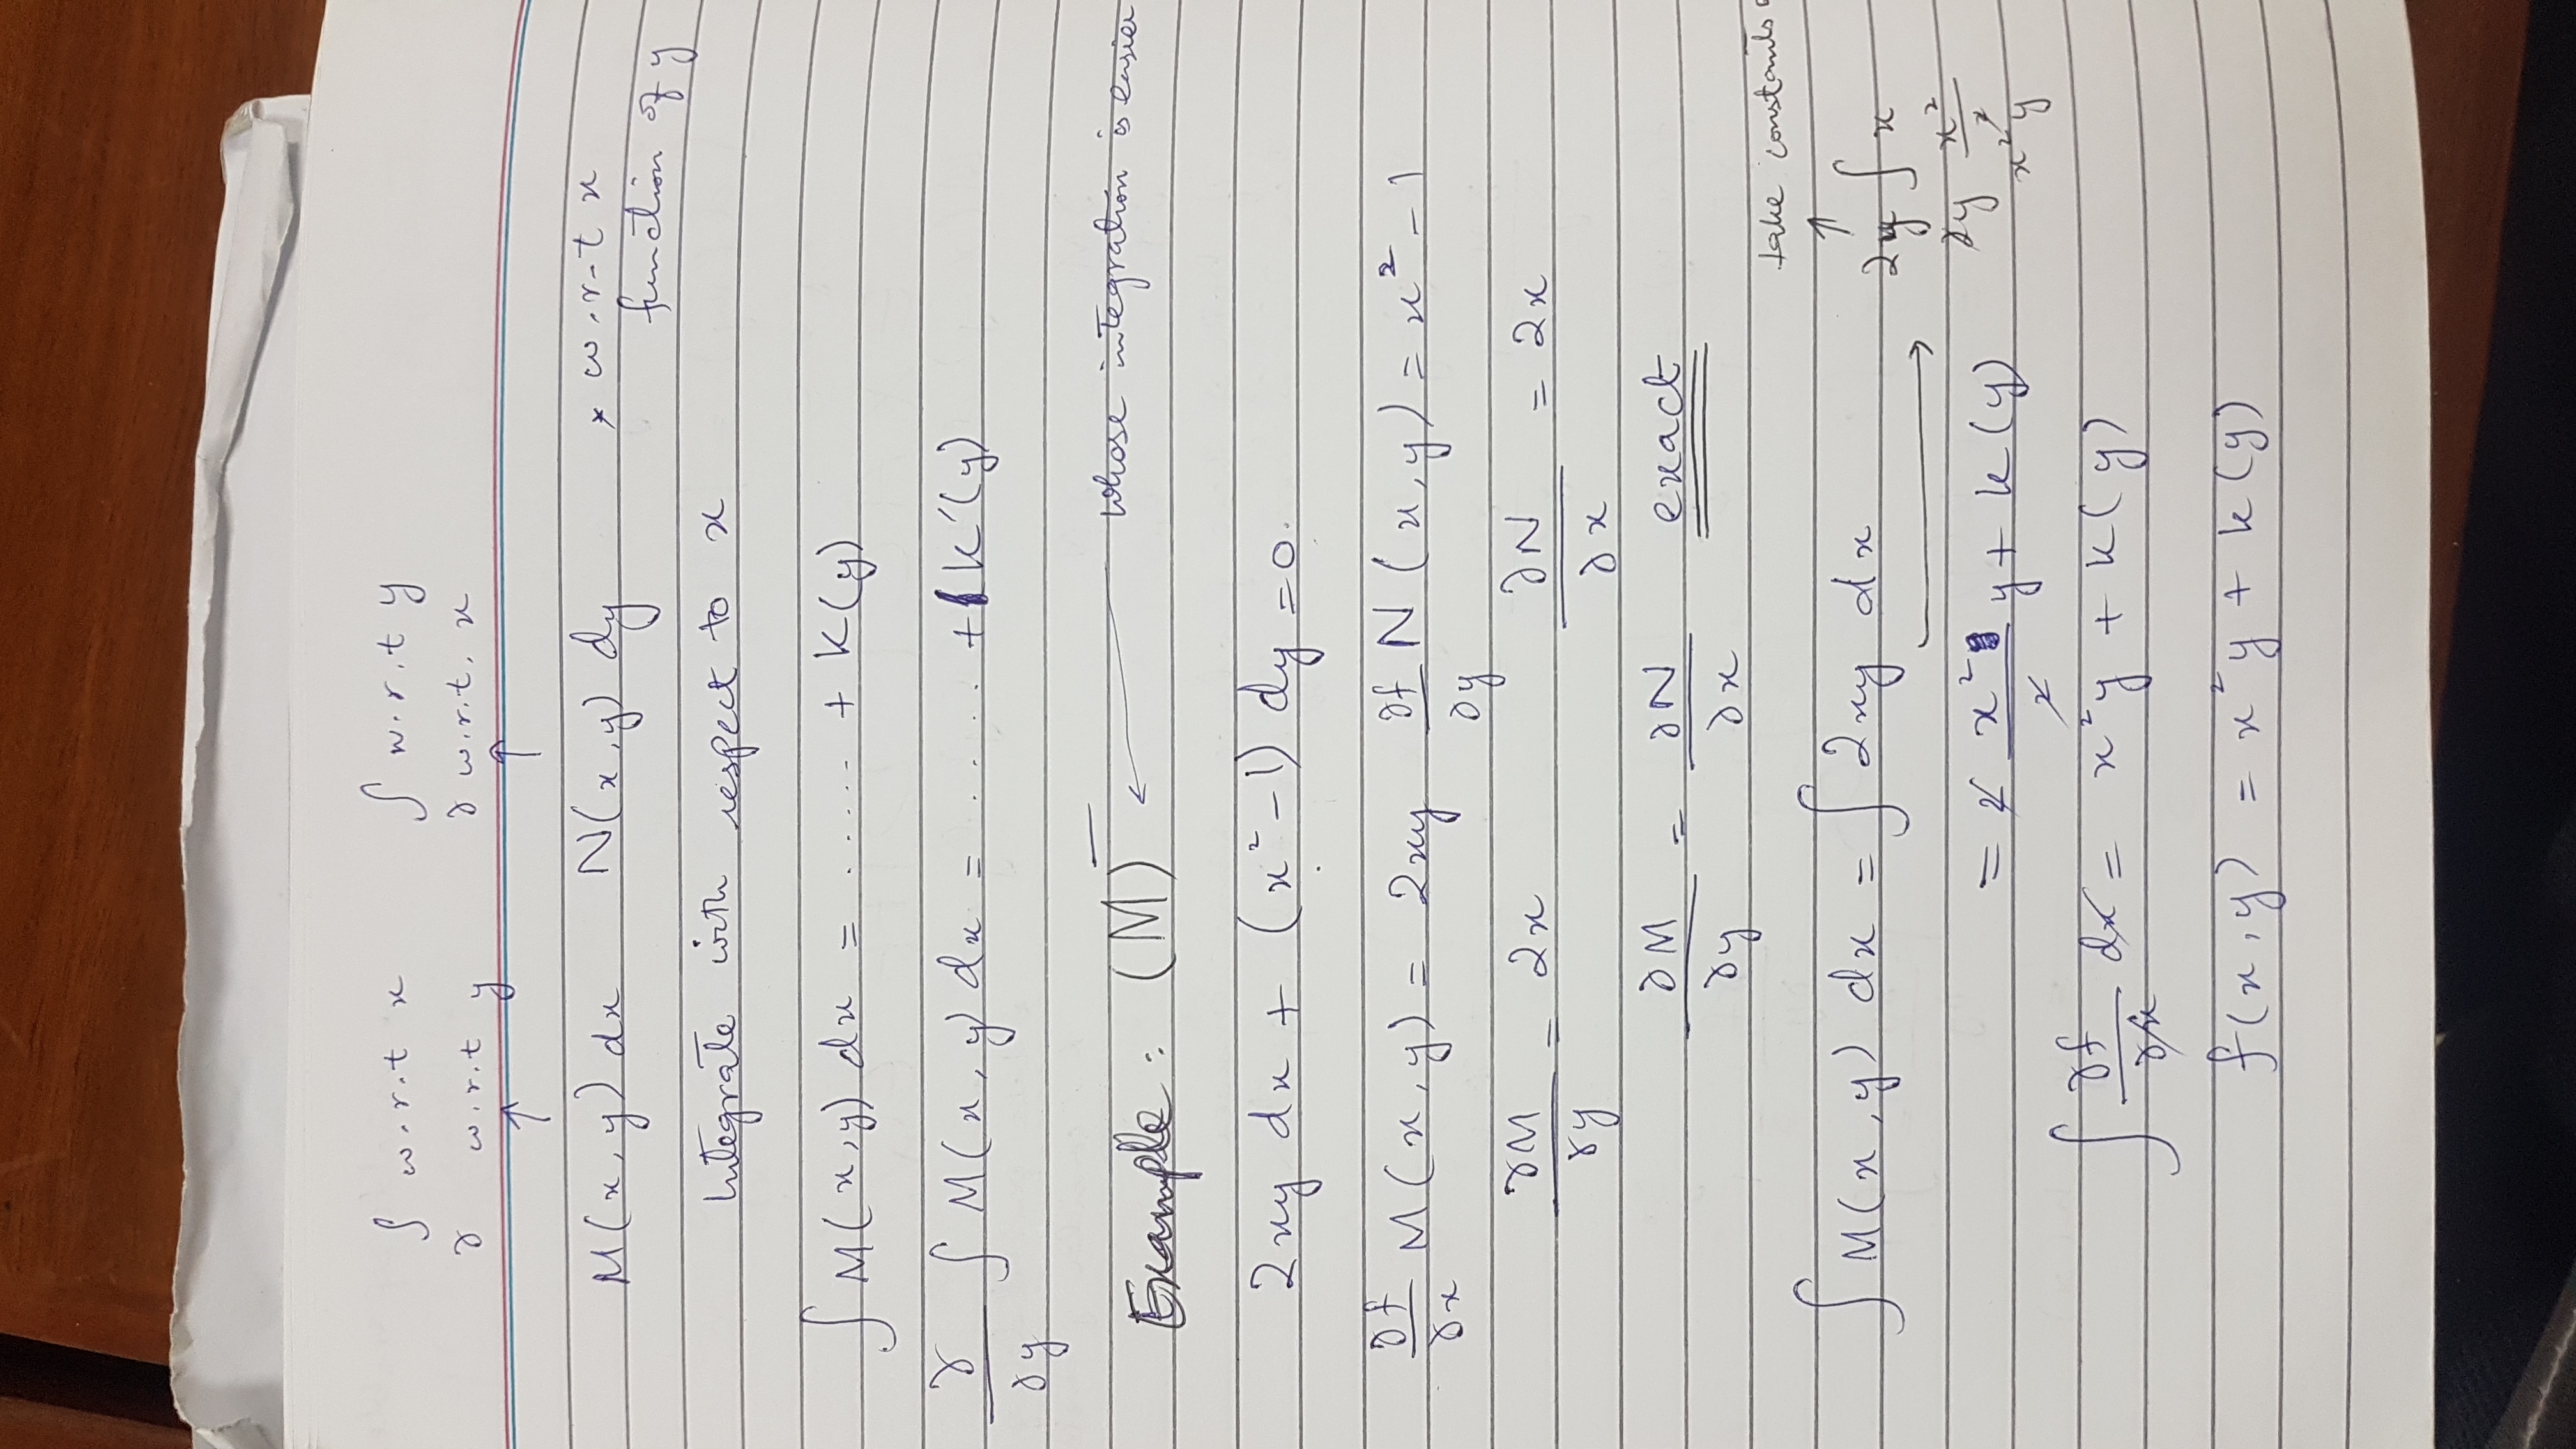 ∫ w.r.t x ∫ w.r.t y
∂ w.r.t y ∂ w.r.t. x
↑ ↑
M(x,y) dx N(x,y) dy * w.r.t x
function of y
Integrate with respect to x
∫ M(x,y) dx = ..... + k(y)
∂/∂y ∫ M(x,y) dx = ..... + k'(y)
Example: (M) ← whose integration is easier
2xy dx + (x² - 1) dy = 0.
∂f/∂x M(x,y) = 2xy ∂f/∂y N(x,y) = x² - 1
∂M/∂y = 2x ∂N/∂x = 2x
∂M/∂y = ∂N/∂x exact
take constants
↑
∫ M(x,y) dx = ∫ 2xy dx → 2y ∫ x
2y x²/2
= 2 x²/2 y + k(y)
x²y
∫ ∂f/∂x dx = x²y + k(y)
f(x,y) = x²y + k(y)